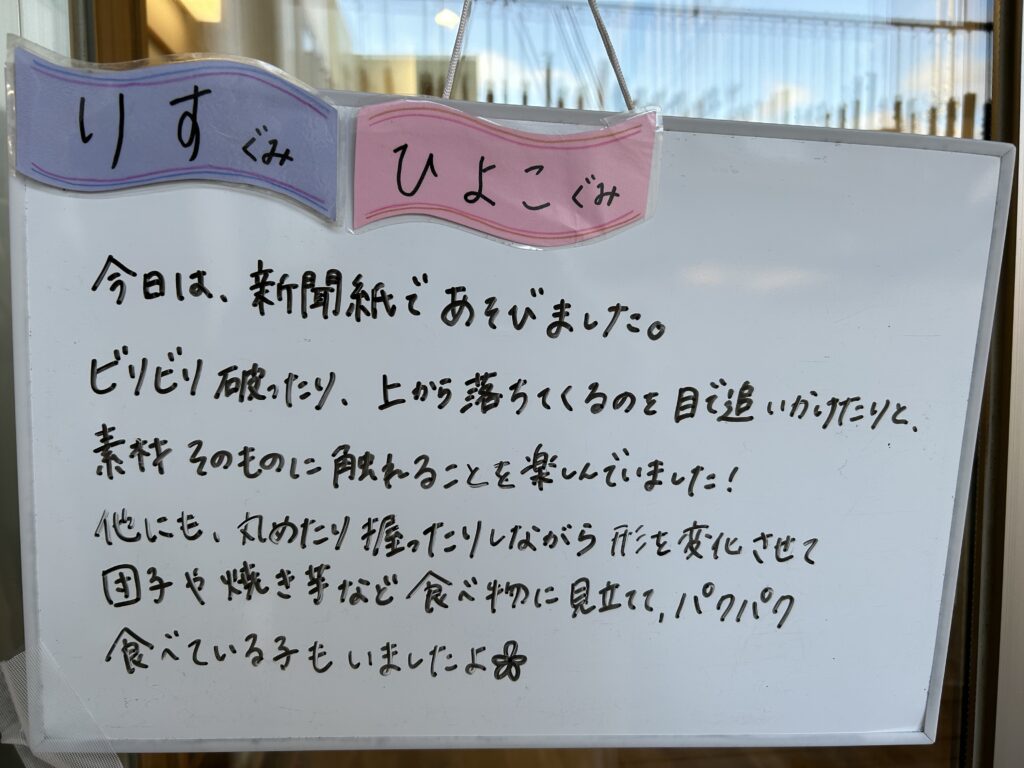 りすぐみ
ひよこぐみ
今日は、新聞紙であそびました。
ビリビリ破ったり、上から落ちてくるのを目で追いかけたりと、
素材そのものに触れることを楽しんでいました!
他にも、丸めたり握ったりしながら形を変化させて
団子や焼き芋など食べ物に見立てて、パクパク
食べている子もいましたよ